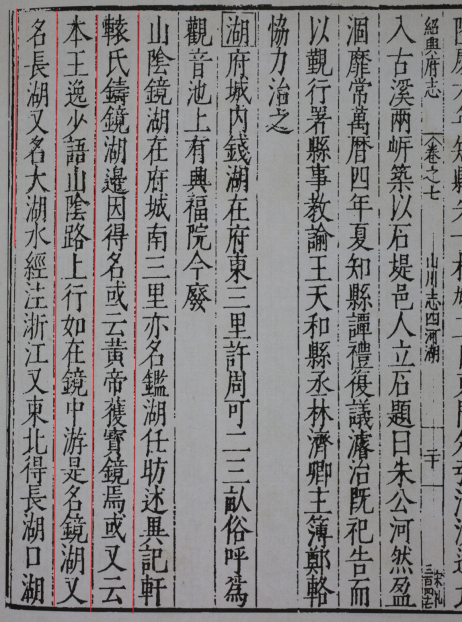 紹興府志 卷之七 山川志四河湖 二十
入古溪兩㟁築以石堤邑人立石題曰朱公河然盈
涸靡常萬曆四年夏知縣譚禮復議濬治既祀告而
以觀行署縣事教諭王天和縣丞林濟卿主簿鄭輅
協力治之
湖府城内錢湖在府東三里許周可二三畝俗呼爲
觀音池上有興福院今廢
山陰鏡湖在府城南三里亦名鑑湖任昉述異記軒
轅氏鑄鏡湖邊因得名或云黃帝獲寶鏡焉或又云
本王逸少語山陰路上行如在鏡中游是名鏡湖又
名長湖又名大湖水經注浙江又東北得長湖口湖